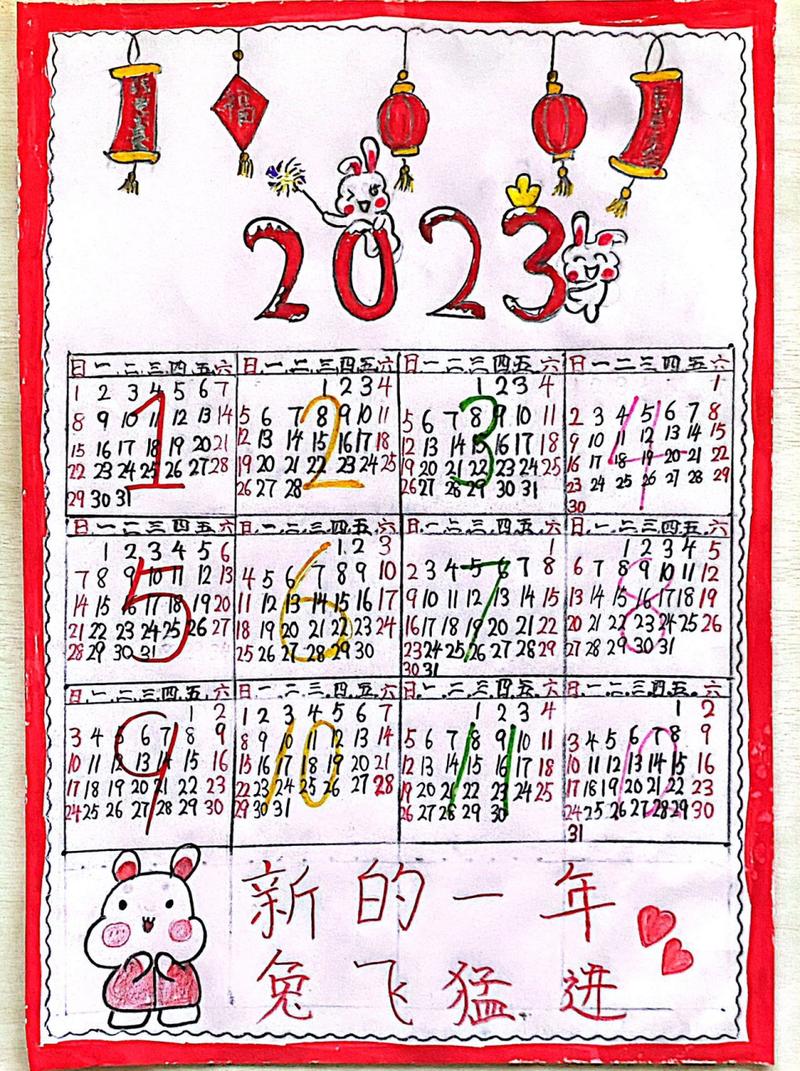 福
2023
日一二三四五六
1
1 2 3 4 5 6 7
8 9 10 11 12 13 14
15 16 17 18 19 20 21
22 23 24 25 26 27 28
29 30 31
日一二三四五六
2
1 2 3 4
5 6 7 8 9 10 11
12 13 14 15 16 17 18
19 20 21 22 23 24 25
26 27 28
日一二三四五六
3
1 2 3 4
5 6 7 8 9 10 11
12 13 14 15 16 17 18
19 20 21 22 23 24 25
26 27 28 29 30 31
日一二三四五六
4
1
2 3 4 5 6 7 8
9 10 11 12 13 14 15
16 17 18 19 20 21 22
23 24 25 26 27 28 29
30
日一二三四五六
5
1 2 3 4 5 6
7 8 9 10 11 12 13
14 15 16 17 18 19 20
21 22 23 24 25 26 27
28 29 30 31
日一二三四五六
6
1 2 3
4 5 6 7 8 9 10
11 12 13 14 15 16 17
18 19 20 21 22 23 24
25 26 27 28 29 30
日一二三四五六
7
1
2 3 4 5 6 7 8
9 10 11 12 13 14 15
16 17 18 19 20 21 22
23 24 25 26 27 28 29
30 31
日一二三四五六
8
1 2 3 4 5
6 7 8 9 10 11 12
13 14 15 16 17 18 19
20 21 22 23 24 25 26
27 28 29 30 31
日一二三四五六
9
1 2
3 4 5 6 7 8 9
10 11 12 13 14 15 16
17 18 19 20 21 22 23
24 25 26 27 28 29 30
日一二三四五六
10
1 2 3 4 5 6 7
8 9 10 11 12 13 14
15 16 17 18 19 20 21
22 23 24 25 26 27 28
29 30 31
日一二三四五六
11
1 2 3 4
5 6 7 8 9 10 11
12 13 14 15 16 17 18
19 20 21 22 23 24 25
26 27 28 29 30
日一二三四五六
12
1 2
3 4 5 6 7 8 9
10 11 12 13 14 15 16
17 18 19 20 21 22 23
24 25 26 27 28 29 30
31
新的一年
兔飞猛进